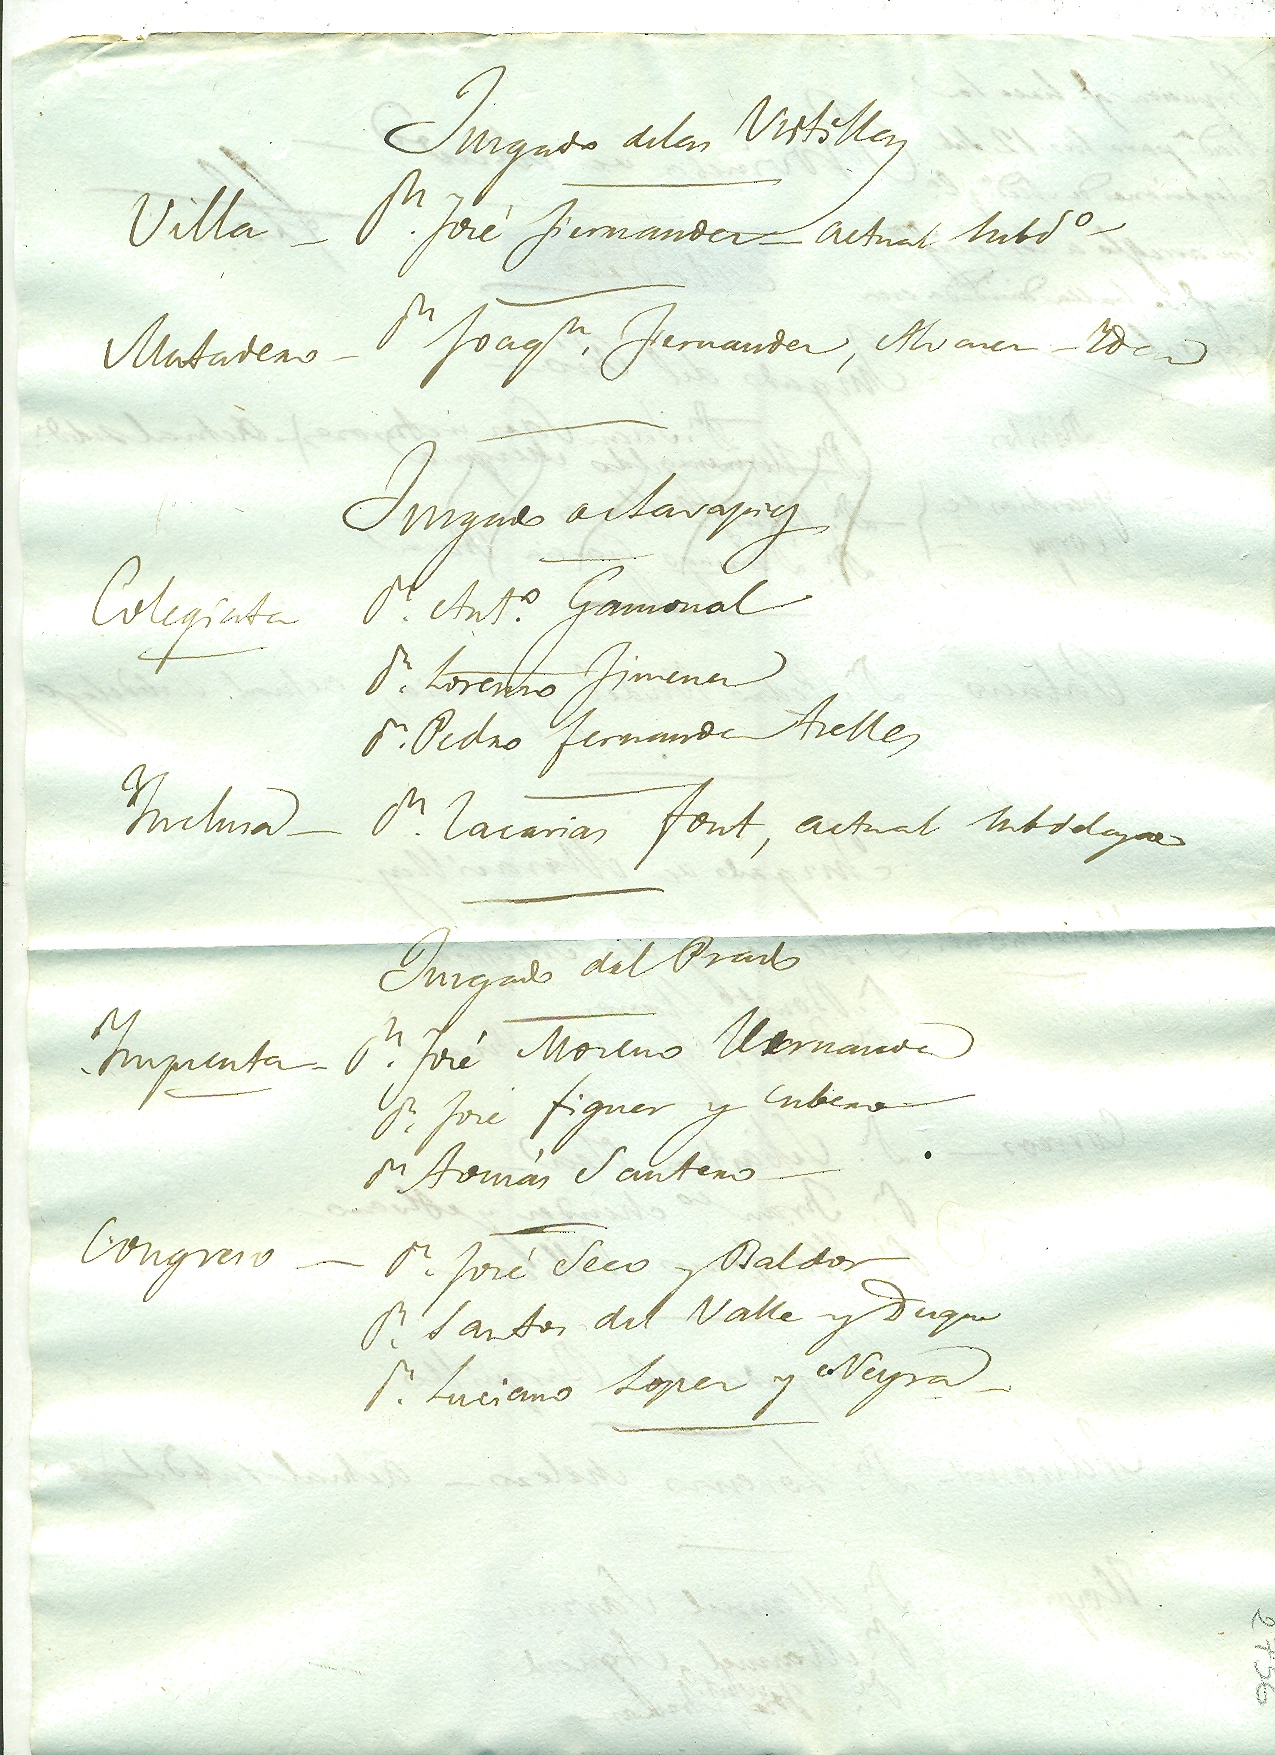 Juzgado delas Vistillas
Villa – Dn. José Fernandez – actual subdo –
Matadero – Dn Joaqn. Fernandez, Alvarez – Idem
Juzgado de Lavapies
Colegiata Dn. Anto. Gamonal
Dn. Lorenzo Jimenez
Dn. Pedro Fernandez Trelles
Inclusa – Dn. Zacarias Font, actual subdelegado
Juzgado del Prado
Imprenta – Dn. José Moreno Hernandez
Dn. José Figuer y Cubero
Dn Tomás Santero –
Congreso – Dn. José Seco y Baldor
Dn. Santos del Valle y Duque
Dn. Luciano Lopez y Neyra –
2736